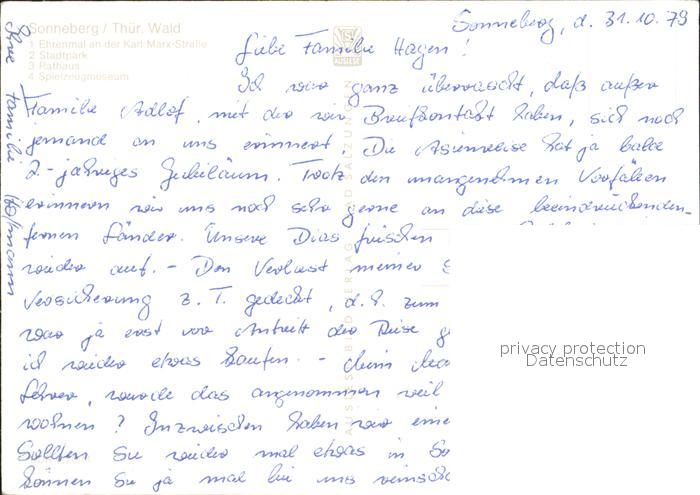 Sonneberg / Thür. Wald
1 Ehrenmal an der Karl-Marx-Straße
2 Stadtpark
3 Rathaus
4 Spielzeugmuseum
AUSLESE
Sonneberg, d. 31.10.79
Liebe Familie Hagen!
Ich war ganz überrascht, daß außer
Familie Adlof, mit der wir Briefkontakt haben, sich noch
jemand an uns erinnert. Die Asienreise hat ja bald
2-jähriges Jubiläum. Trotz den unangenehmen Vorfällen
erinnern wir uns noch sehr gerne an diese beeindruckenden-
fernen Länder. Unsere Dias frischen
wieder auf. - Den Verlust meiner
Versicherung z. T. gedeckt, d.h. zum
war ja erst vor Antritt der Reise
ich wieder etwas kaufen. -
Lehrer, wurde das angenommen weil
wohnen? Inzwischen haben wir eine
Sollten Sie wieder mal etwas in So
können Sie ja mal bei uns reinsch
Ihre Familie Hofmann
privacy protection
Datenschutz